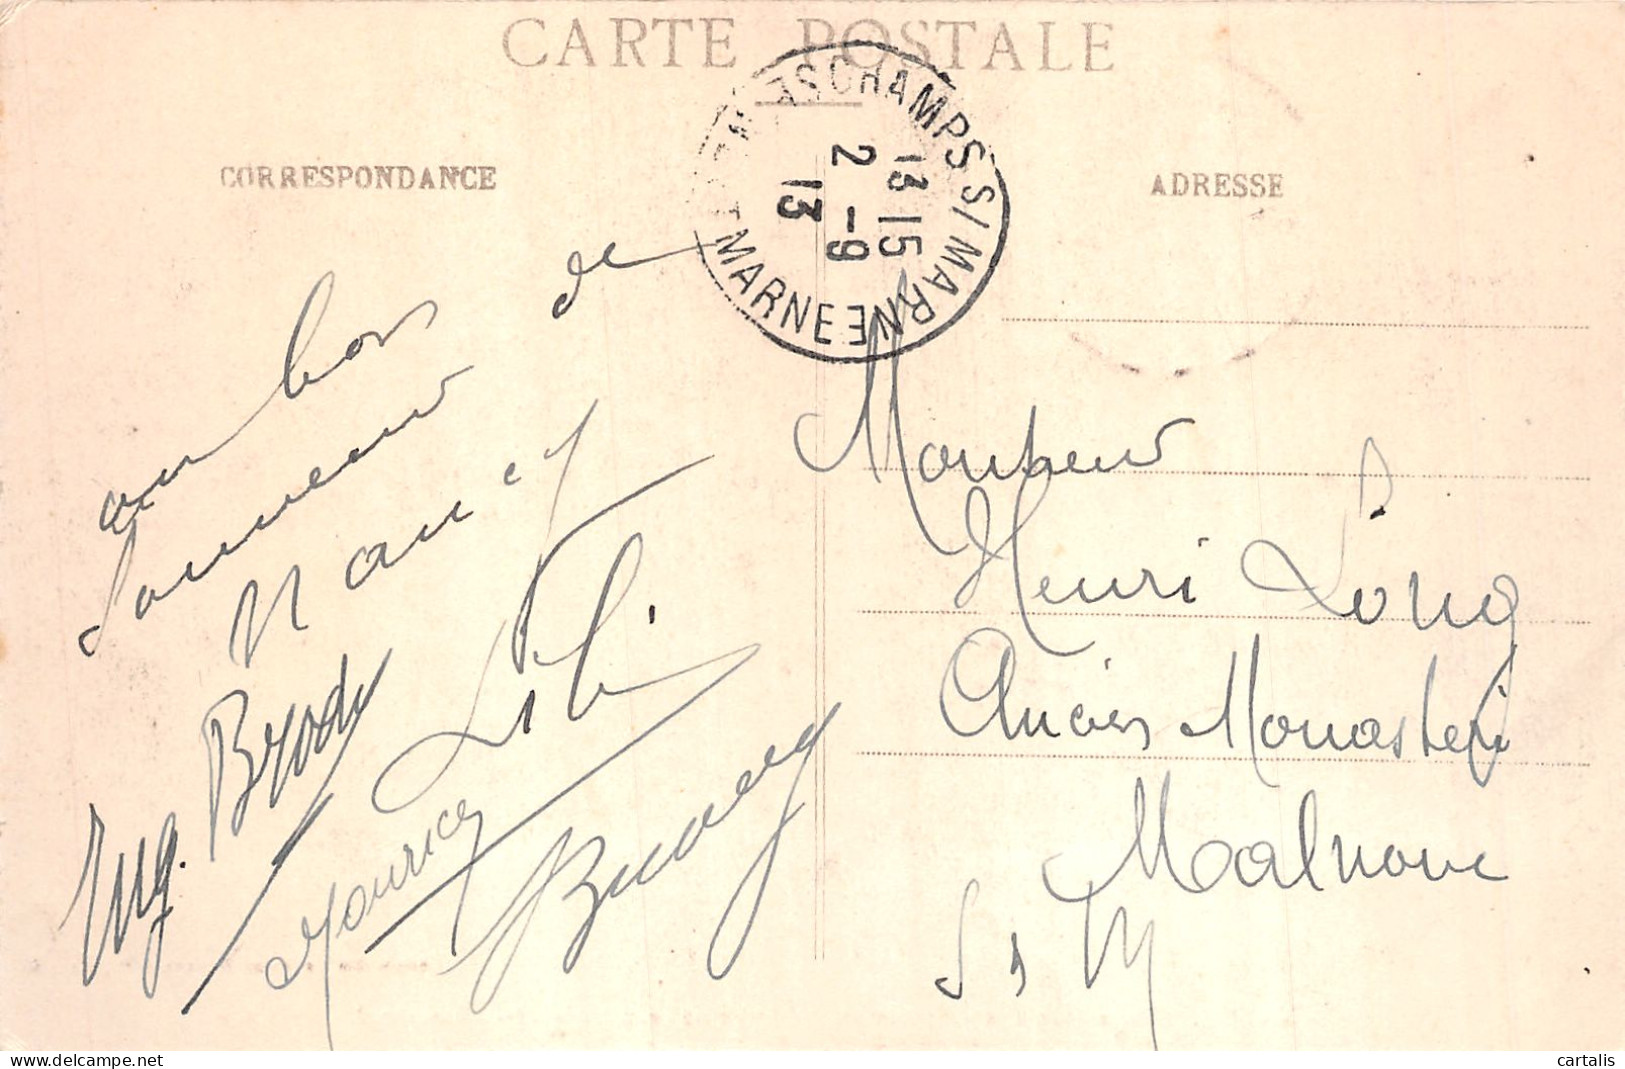 CARTE POSTALE
CORRESPONDANCE
ADRESSE
SCHAMPS S/ MARNE
MARNE
13 15
2 -9
13
un bon
Souvenir de
Nancy
Eug. Brody
Lili
Maurice
Monsieur
Henri Long
Ancien Monastère
Malnoue
S & M
cartalis
www.delcampe.net